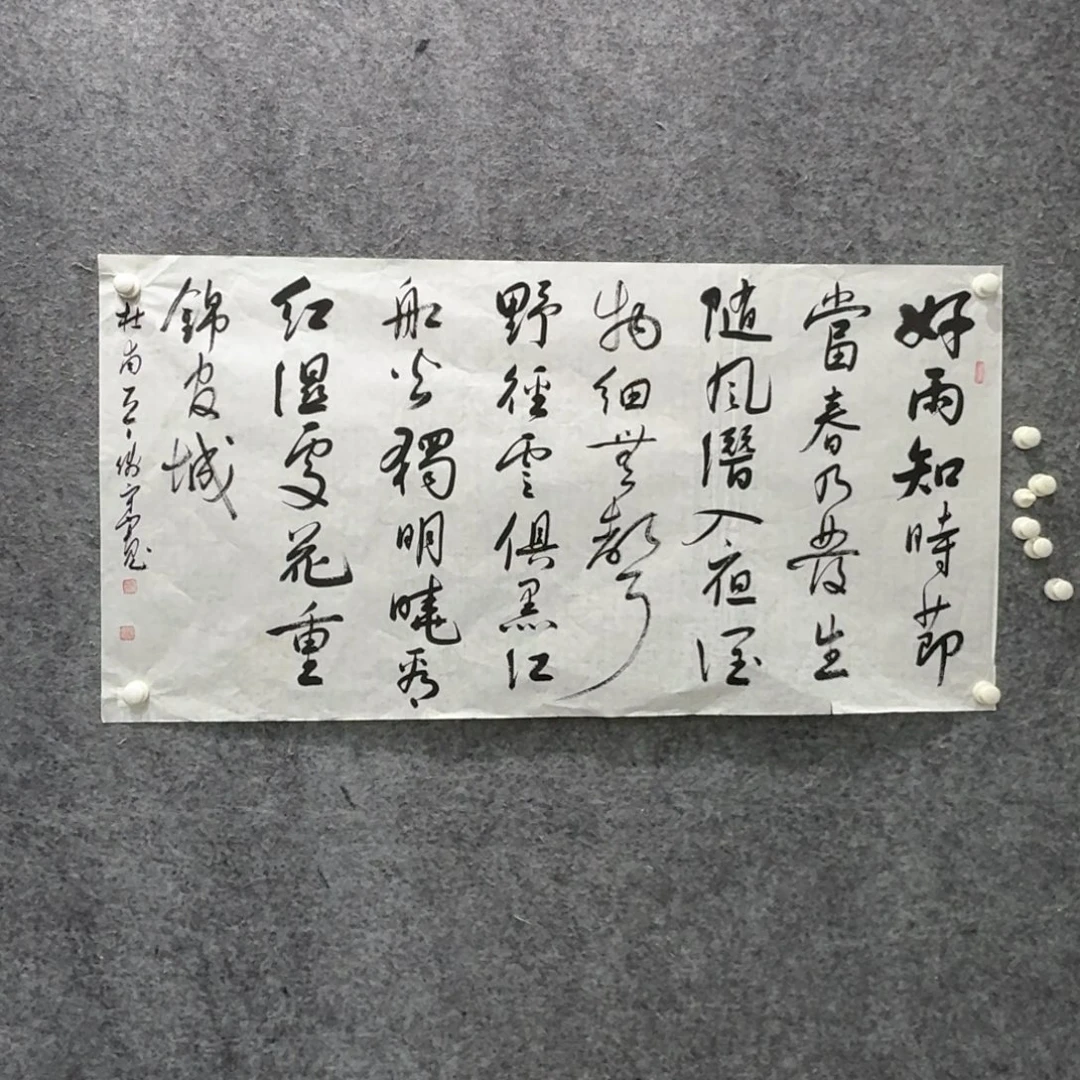 好雨知時節
當春乃發生
隨風潛入夜潤
物細無聲
野徑雲俱黑江
船火獨明曉看
紅湿處花重
錦官城
杜甫